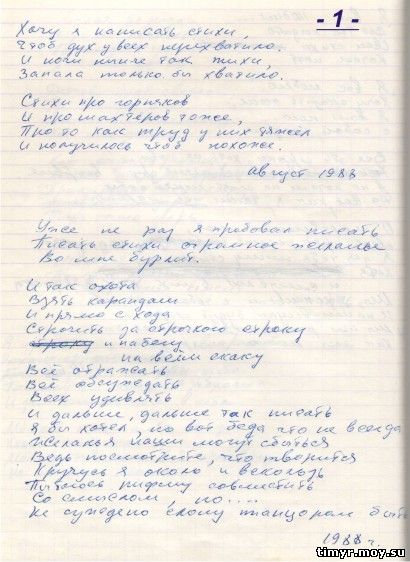 - 1 -
Хочу я написать стихи,
Чтоб дух у всех перехватило.
И ночи нынче так тихи,
Запала только бы хватило.
Стихи про горняков
И про шахтеров тоже,
Про то как труд у них тяжел
И получилось чтоб похоже.
август 1988
Уже не раз я пробовал писать
Писать стихи огромное желанье
Во мне бурлит.
И так охота
Взять карандаш
И прямо с хода
Строчить за строчкою строку
и на бегу
на всём скаку
Всё отражать
Всё обсуждать
Всех удивлять
И дальше, дальше так писать
Я бы хотел, но вот беда что не всегда
Желанья наши могут сбыться
Ведь посмотрите, что творится
Кручусь я около, и вскользь
Пытаюсь рифму совместить
Со смыслом, но....
Не суждено слону танцором быть
1988 г.
timyr.moy.su